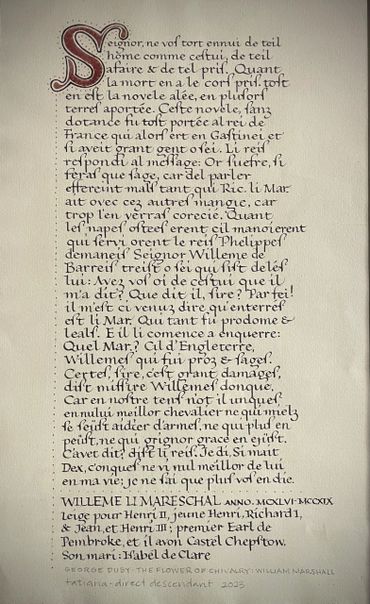 Seignor, ne vos tort ennui de teil
home comme cestui, de teil
afaire & de tel pris. Quant
la mort en a le cors pris, tost
en est la novele alée, en plusors
terres aportée. Ceste novele, sanz
dotance fu tost portée al rei de
France qui alors ert en Gastinei et
si aveit grant gent o sei. Li reis
respondi al message: Or suefre, si
feras que sage, car del parler
effereint mals tant qui Ric. li Mar.
ait ovec cez autres mangie, car
trop l'en verras corecié. Quant
les napes ostees erent cil manoierent
qui servi orent le reis Phelippes
demaneis Seignor Willeme de
Barreis treist o sei qui sist delés
lui: Avez vos oi de cestui que il
m'a dit? Que dit il, sire? Par fei!
il m'est ci venuz dire qu'enterrés
est li Mar. Qui tant fu prodome &
leals. E il li comence a enquerre:
Quel Mar.? Cil d'Engleterre,
Willemes qui fui proz & sages.
Certes, sire, c'est grant damages,
dist missire Willemes donque,
Car en nostre tens n'ot il unques
en nului meillor chevalier ne qui mielz
se seüst aidier d'armes, ne qui plus en
peüst, ne qui grignor grace en eüst.
C'avet dit? dist li reis. Je di, Si m'ait
Dex, c'onques ne vi nul meillor de lui
en ma vie: je ne sai que plus vos en die.
WILLEME LI MARESCHAL ANNO. MCXLVI-MCCXIX
Leige pour Henri II, jeune Henri, Richard I,
& Jean, et Henri III; premier Earl de
Pembroke, et il avon Castel Chepstow.
Son mari: Isabel de Clare
GEORGE DUBY · THE FLOWER OF CHIVALRY: WILLIAM MARSHALL
tatiana - direct descendant 2023